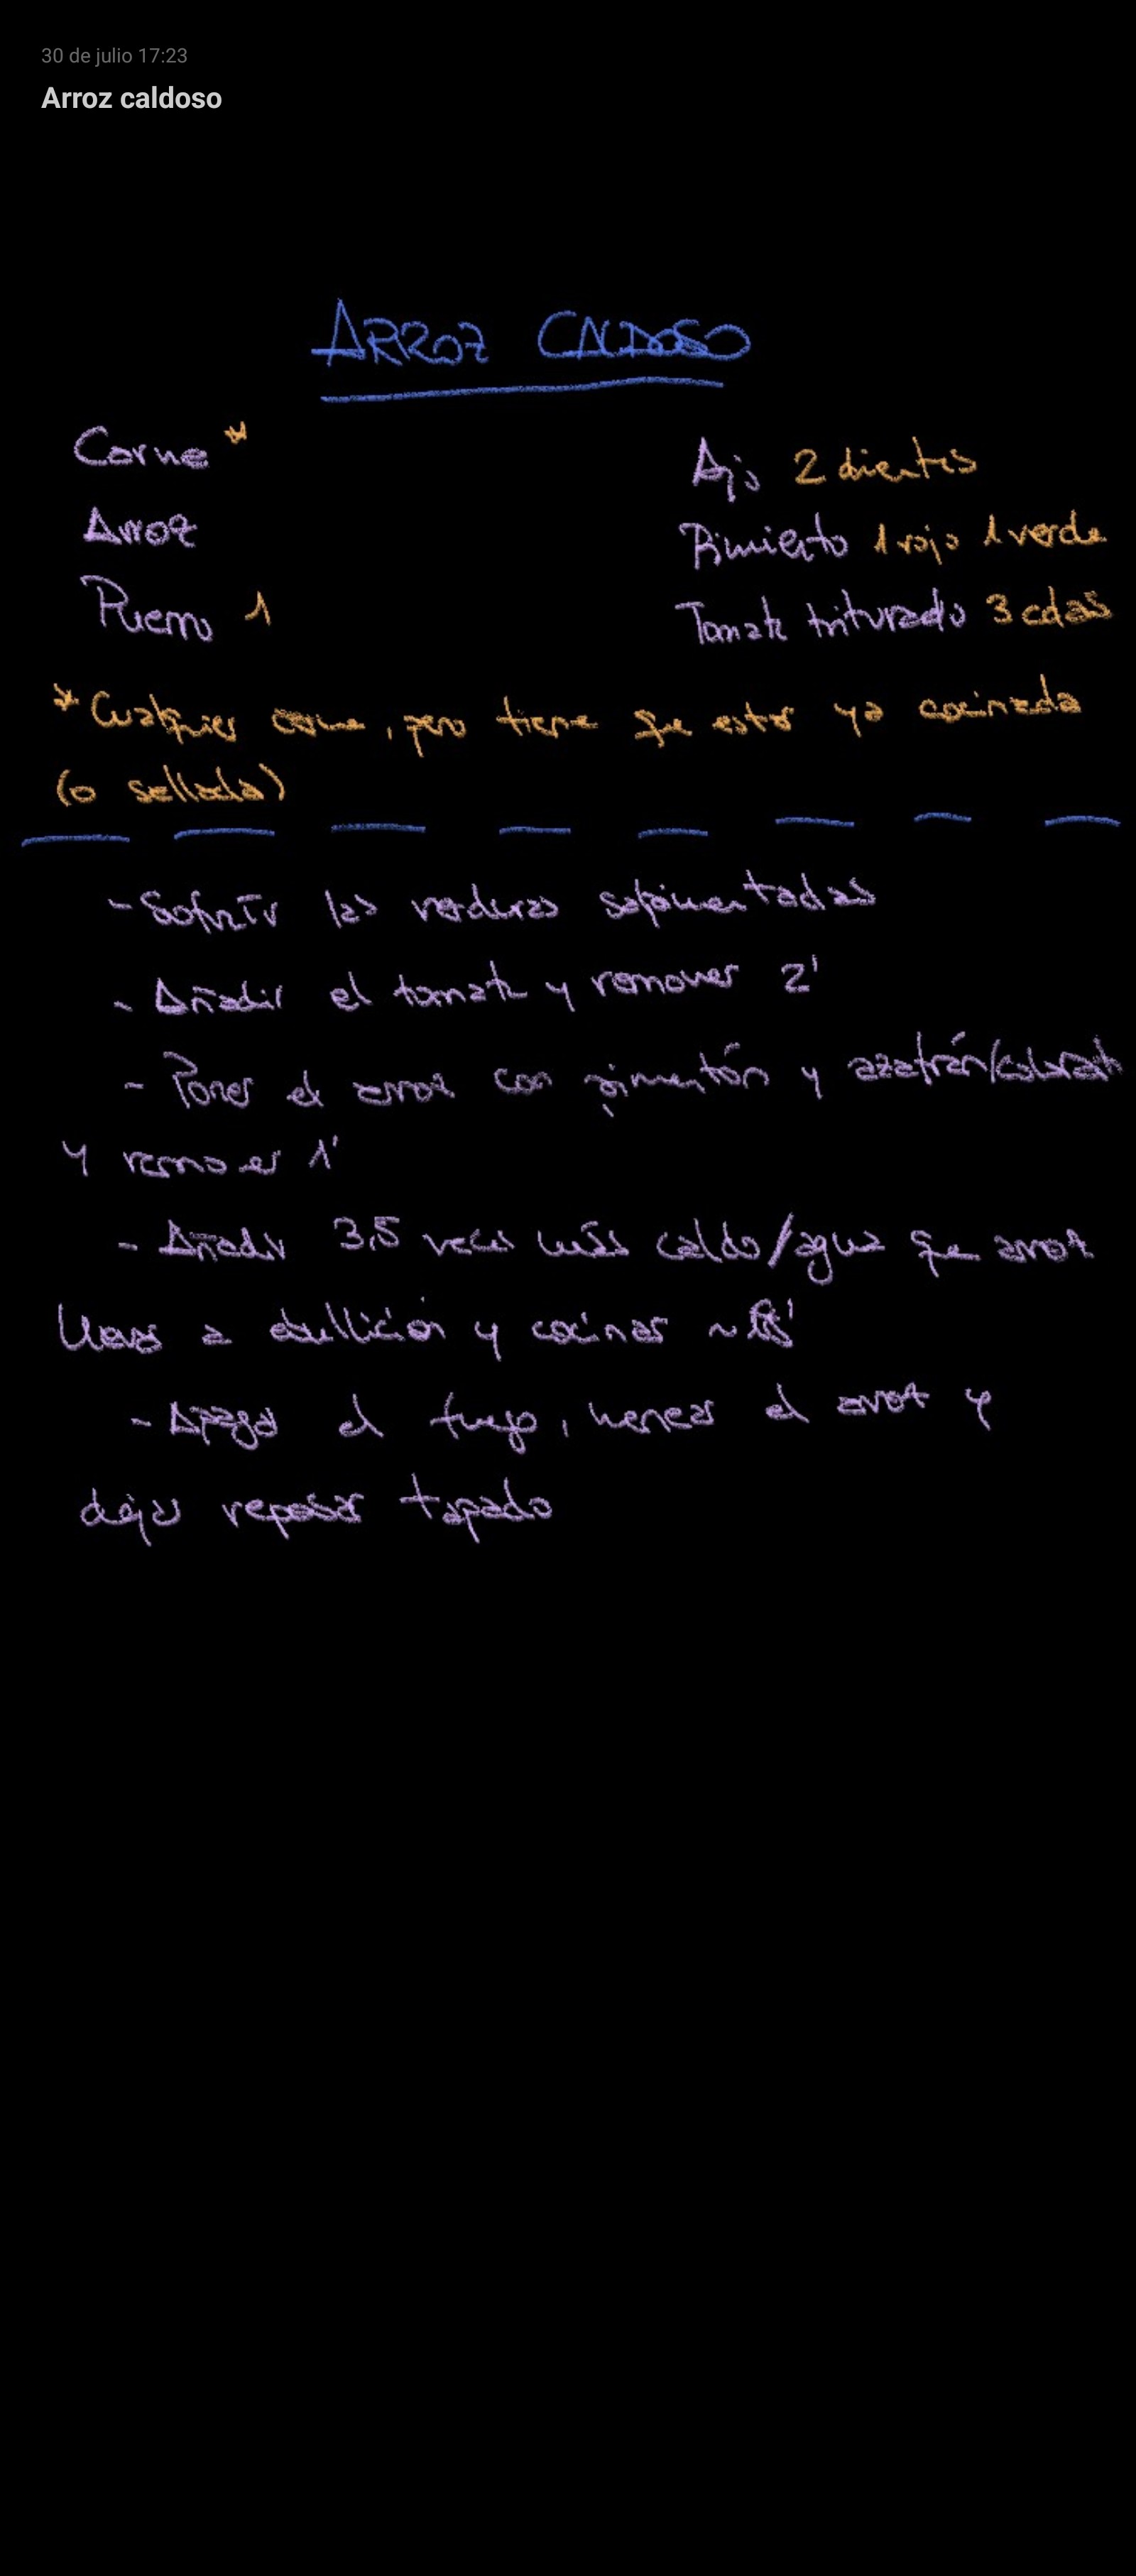 30 de julio 17:23
Arroz caldoso
ARROZ CALDOSO
Carne *
Arroz
Puerro 1
Ajo 2 dientes
Pimiento 1 rojo 1 verde
Tomate triturado 3 cdas
* Cualquier carne, pero tiene que estar ya cocinada
(o sellada)
- Sofreír las verduras salpimentadas
- Añadir el tomate y remover 2'
- Poner el arroz con pimentón y azafrán/colorante
y remover 1'
- Añadir 3,5 veces más caldo/agua que arroz
llevar a ebullición y cocinar ~
- Apagar el fuego, menear el arroz y
dejar reposar tapado